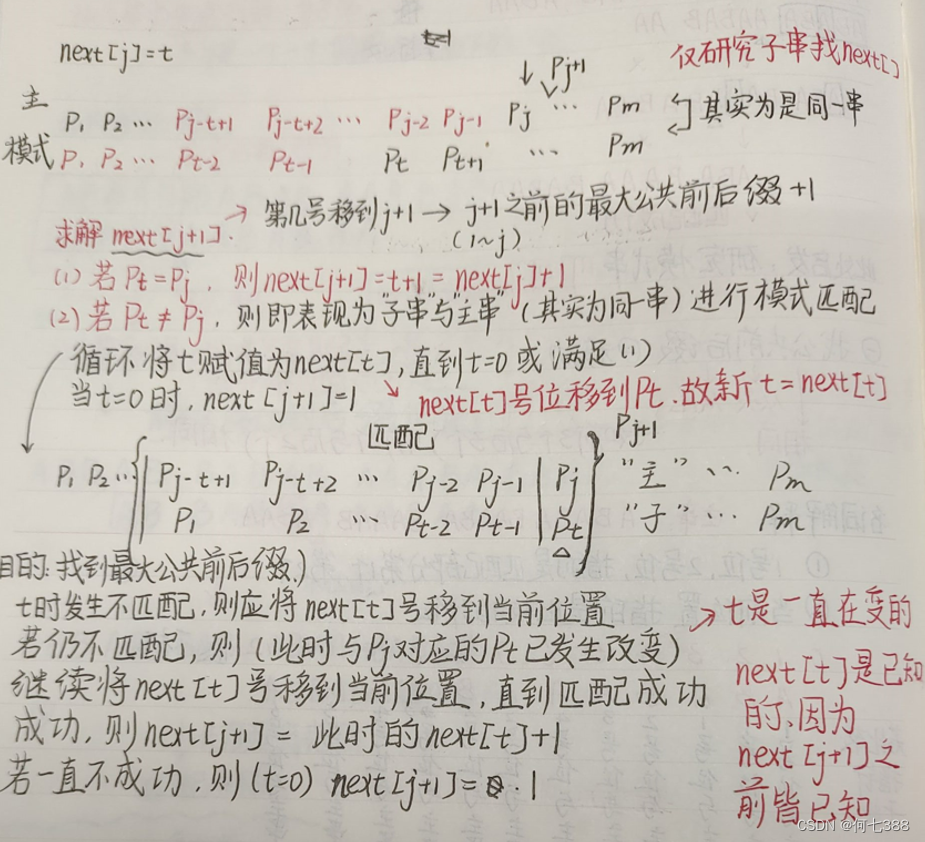 next[j]=t
仅研究子串找next[]
↓ Pj+1
主 P1 P2 … Pj-t+1 Pj-t+2 … Pj-2 Pj-1 Pj … Pm
其实为是同一串
模式 P1 P2 … Pt-2 Pt-1 Pt Pt+1 … Pm
→ 第几号移到j+1 → j+1之前的最大公共前后缀+1
(1~j)
求解next[j+1].
(1) 若Pt=Pj, 则next[j+1]=t+1=next[j]+1
(2) 若Pt≠Pj, 则即表现为"子串"与"主串"(其实为同一串)进行模式匹配
循环将t赋值为next[t],直到t=0或满足(1)
当t=0时,next[j+1]=1
next[t]号位移到Pt.故新t=next[t]
匹配
Pj+1
P1 P2 … Pj-t+1 Pj-t+2 … Pj-2 Pj-1 Pj "主" … Pm
P1 P2 … Pt-2 Pt-1 Pt "子" … Pm
目的:找到最大公共前后缀.)
t时发生不匹配,则应将next[t]号移到当前位置
→ t是一直在变的
若仍不匹配,则(此时与Pj对应的Pt已发生改变)
继续将next[t]号移到当前位置,直到匹配成功
成功,则next[j+1]= 此时的next[t]+1
若一直不成功,则(t=0) next[j+1]=1
next[t]是已知
的、因为
next[j+1]之
前皆已知
CSDN @何七388